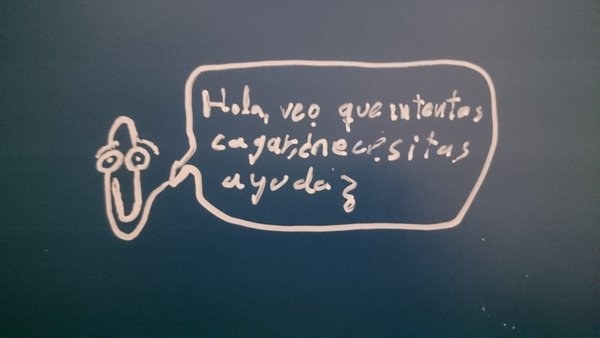 Hola, veo que intentas
cagar, ¿necesitas
ayuda?